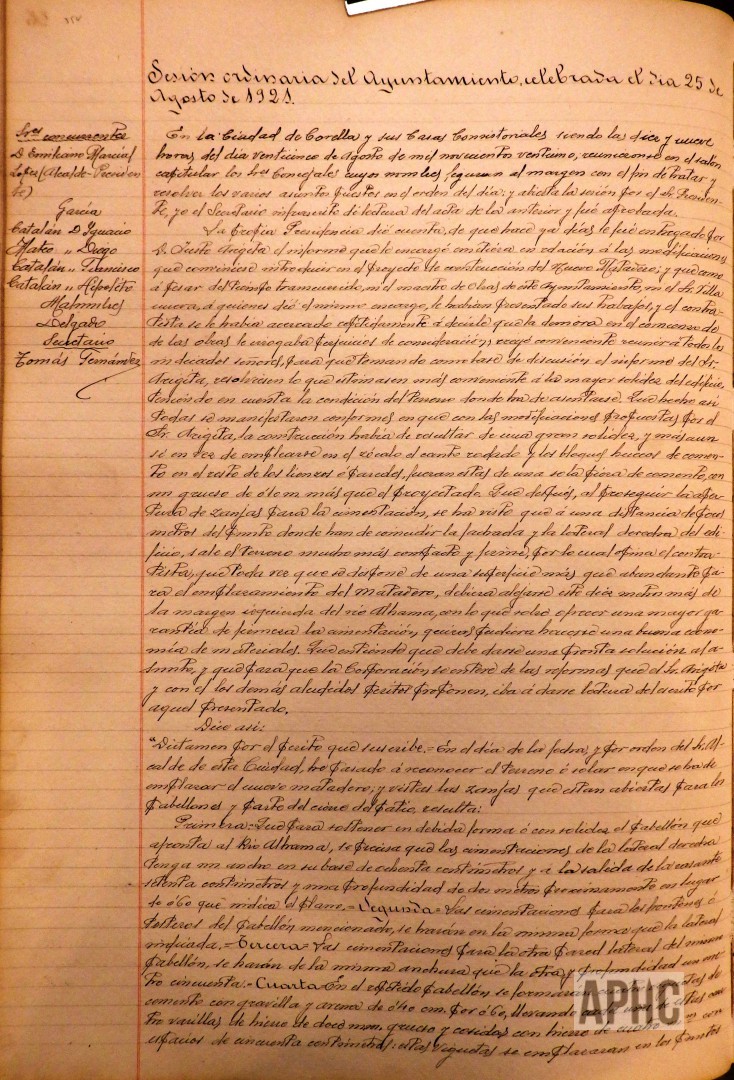 Sesión ordinaria del Ayuntamiento, celebrada el día 25 de
Agosto de 1921.
Sres concurrentes
D. Emiliano Marcial
López (Alcalde-Presiden
te)
García
Catalán D. Ignacio
Mateo " Diego
Catalán " Francisco
Catalán " Hipólito
Malumbres
Delgado
Secretario
Tomás Fernández
En la Ciudad de Corella y sus Casas Consistoriales siendo las diez y nueve
horas del día venticinco de Agosto de mil novecientos ventiuno, reunieronse en el salón
capitular los Sres Concejales cuyos nombres figuran al margen con el fin de tratar y
resolver los varios asuntos puestos en el orden del día; y abierta la sesión por el Sr. Presiden-
te, yo el Secretario infrascrito dí lectura del acta de la anterior y fué aprobada.
La propia Presidencia dió cuenta, de que hace ya días le fué entregado por
D. Justo Argita el informe que le encargó emitiera en relación á las modificaciones
que conviniese introducir en el proyecto de construcción del Nuevo Matadero; y que como
á pesar del tiempo transcurrido, ni el maestro de obras de este Ayuntamiento, ni el Sr. Villa
nueva, á quienes dió el mismo encargo, le habían presentado sus trabajos, y el contra-
tista se le había acercado repetidamente á decirle que la demora en el comienzo de
de las obras le irrogaba perjuicios de consideración, creyó conveniente reunir á todos los
indicados señores, para que tomando como base de discusión el informe del Sr.
Argita, resolviesen lo que estimasen más conveniente á la mayor solidez del edificio
teniendo en cuenta la condición del terreno donde ha de asentarse. Que hecho así
todos se manifestaron conformes en que con las modificaciones propuestas por el
Sr. Argita, la construcción había de resultar de una gran solidez, y más aun
si en vez de emplearse en el zócalo el canto rodado y los bloques huecos de cemen-
to en el resto de los lienzos ó paredes, fueran estas de una sola pieza de cemento, con
un grueso de 0'10 m más que el proyectado. Que después, al proseguir la aper
tura de zanjas para la cimentación, se ha visto que á una distancia de diez
metros del punto donde han de coincidir la fachada y la lateral derecha del edi
ficio, sale el terreno mucho más compacto y firme, por lo cual opina el contra-
tista, que toda vez que se dispone de una superficie más que abundante pa-
ra el emplazamiento del Matadero, debiera alejarse este diez metros más de
la margen izquierda del río Alhama, con lo que sobre ofrecer una mayor ga
rantía de firmeza la cimentación, quizás pudiera hacerse una buena econo-
mía de materiales. Que entiende que debe darse una pronta solución al a-
sunto, y que para que la Corporación, se entere de las reformas que el Sr. Argita
y con él los demás aludidos peritos proponen, iba á darse lectura del escrito por
aquel presentado.
Dice así:
"Dictamen por el perito que suscribe.= En el día de la fecha, y por orden del Sr. Al
calde de esta Ciudad, he pasado á reconocer el terreno ó solar en que se ha de
emplazar el nuevo matadero; y vistas las zanjas que están abiertas para los
pabellones y parte del cierre de patio, resulta:
Primera= Que para sostener en debida forma ó con solidez el pabellón que
afronta al Río Alhama, se precisa que las cimentaciones de la lateral derecha
tenga un ancho en su base de ochenta centímetros y á la salida de la rasante
setenta centímetros y una profundidad de dos metros próximamente en lugar
de 0'60 que indica el plano.= Segunda= Las cimentaciones para los frontones ó
testeros del pabellón mencionado, se harán en la misma forma que la lateral
indicada.= Tercera= Las cimentaciones para la otra pared lateral del mismo
pabellón, se harán de la misma anchura que la otra, y profundidad un me-
tro cincuenta.= Cuarta= En el citado pabellón, se formarán
cemento con gravilla y arena de 0'40 cm. por 0'60, llevando
tro varillas de hierro de doce mm. grueso y cosidas con hierro de
espacios de cincuenta centímetros: estas viguetas se emplazarán en los puntos
APHC